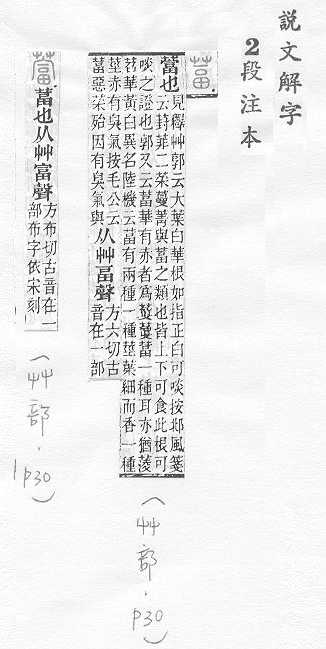 說文解字
2段注本
葍
䔰也
見釋艸郭云大葉白華根如指正白可啖按邶風箋
云葑菲二菜蔓菁與葍之類也皆上下可食此根可
啖之證也郭又云葍華有赤者爲藑藑葍一種耳亦猶蔆
苕華黃白異名陸機云葍有兩種一種莖葉細而香一種
莖赤有臭氣按毛公云
葍惡菜殆因有臭氣與
从艸畐聲
方六切古
音在一部
(艸部.p30)
䔰
葍也从艸富聲
方布切古音在一
部布字依宋刻
(艸部.p30)